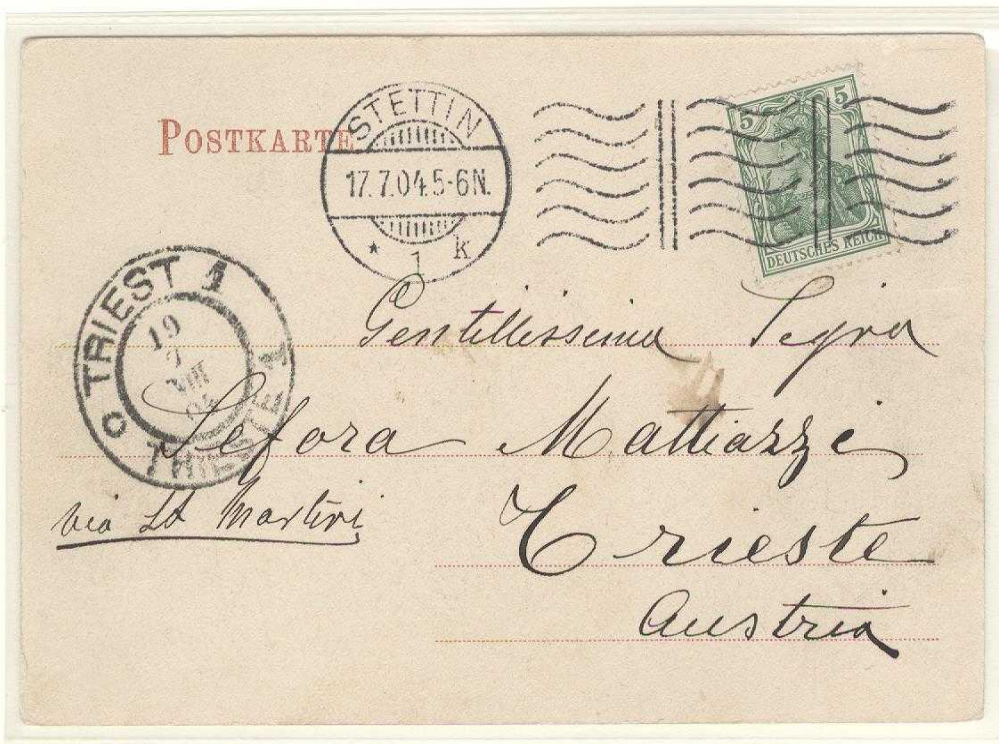 POSTKARTE
STETTIN
17.7.04.5-6N.
* 1 k
5 5
DEUTSCHES REICH
TRIEST 1
19
VII
04
TRIESTE 1
Gentillissima Segra
Sefora Mattiazzi
via St Martiri
Trieste
Austria